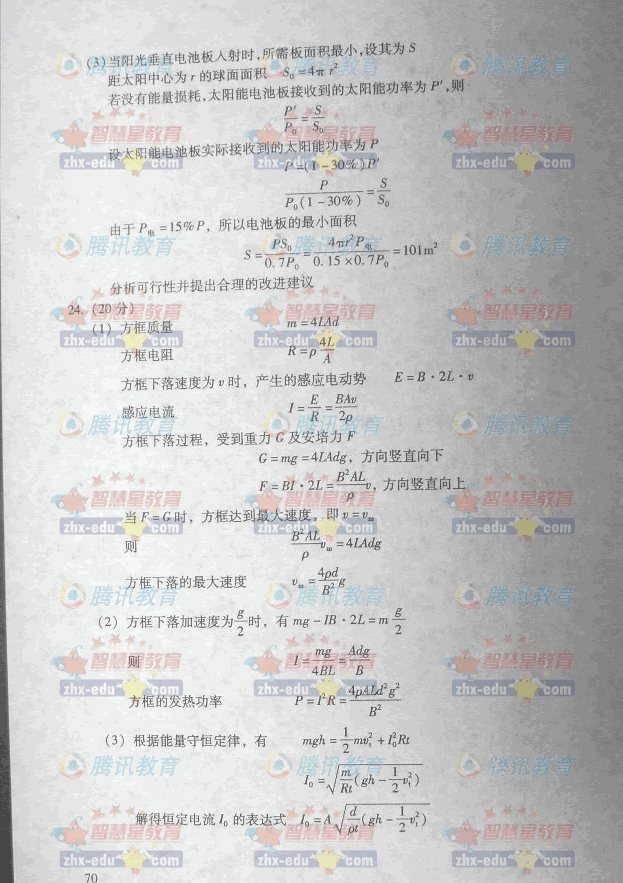 (3)当阳光垂直电池板入射时,所需板面积最小,设其为 S
距太阳中心为 r 的球面面积 S₀=4πr²
若没有能量损耗,太阳能电池板接收到的太阳能功率为 P′,则
P′/P₀=S/S₀
设太阳能电池板实际接收到的太阳能功率为 P
P=(1-30%)P′
P/P₀(1-30%)=S/S₀
由于 P电=15%P,所以电池板的最小面积
S=PS₀/0.7P₀=4πr²P电/0.15×0.7P₀=101m²
分析可行性并提出合理的改进建议
24.(20分)
(1) 方框质量 m=4LAd
方框电阻 R=ρ4L/A
方框下落速度为 v 时,产生的感应电动势 E=B·2L·v
感应电流 I=E/R=BAv/2ρ
方框下落过程,受到重力 G 及安培力 F
G=mg=4LAdg,方向竖直向下
F=BI·2L=B²AL/ρ v,方向竖直向上
当 F=G 时,方框达到最大速度,即 v=vm
则 B²AL/ρ vm=4LAdg
方框下落的最大速度 vm=4ρd/B² g
(2) 方框下落加速度为g/2时,有 mg-IB·2L=m g/2
则 I=mg/4BL=Adg/B
方框的发热功率 P=I²R=4ρALd²g²/B²
(3) 根据能量守恒定律,有 mgh=1/2 mvt²+I₀²Rt
I₀=√(m/Rt(gh-1/2 vt²))
解得恒定电流 I₀ 的表达式 I₀=A√(d/ρt(gh-1/2 vt²))
70
腾讯教育
智慧星教育
zhx-edu com